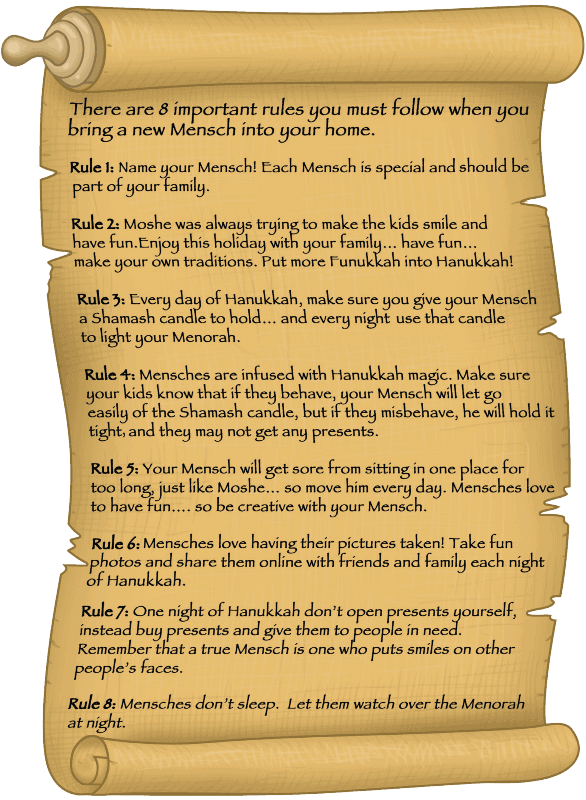 There are 8 important rules you must follow when you
bring a new Mensch into your home.
Rule 1: Name your Mensch! Each Mensch is special and should be
part of your family.
Rule 2: Moshe was always trying to make the kids smile and
have fun.Enjoy this holiday with your family... have fun...
make your own traditions. Put more Funukkah into Hanukkah!
Rule 3: Every day of Hanukkah, make sure you give your Mensch
a Shamash candle to hold... and every night use that candle
to light your Menorah.
Rule 4: Mensches are infused with Hanukkah magic. Make sure
your kids know that if they behave, your Mensch will let go
easily of the Shamash candle, but if they misbehave, he will hold it
tight, and they may not get any presents.
Rule 5: Your Mensch will get sore from sitting in one place for
too long, just like Moshe... so move him every day. Mensches love
to have fun.... so be creative with your Mensch.
Rule 6: Mensches love having their pictures taken! Take fun
photos and share them online with friends and family each night
of Hanukkah.
Rule 7: One night of Hanukkah don't open presents yourself,
instead buy presents and give them to people in need.
Remember that a true Mensch is one who puts smiles on other
people's faces.
Rule 8: Mensches don't sleep. Let them watch over the Menorah
at night.